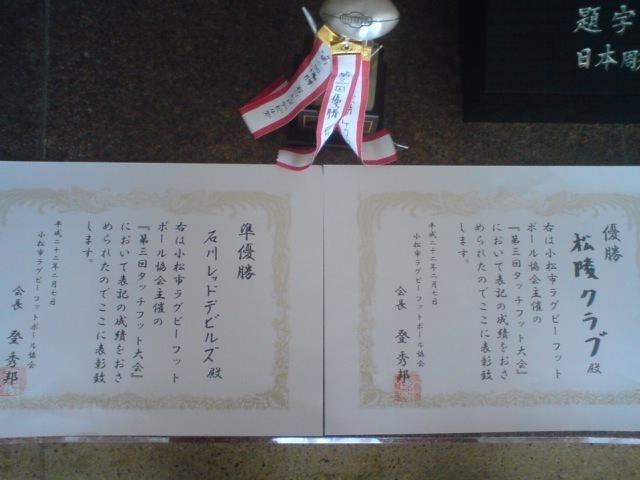 題字
日本彫
優勝
松陵クラブ殿
右は小松市ラグビーフット
ボール協会主催の
『第三回タッチフット大会』
において表記の成績をおさ
められたのでここに表彰致
します。
平成二十二年二月七日
小松市ラグビーフットボール協会
会長 登秀邦
準優勝
石川レッドデビルズ殿
右は小松市ラグビーフット
ボール協会主催の
『第三回タッチフット大会』
において表記の成績をおさ
められたのでここに表彰致
します。
平成二十二年二月七日
小松市ラグビーフットボール協会
会長 登秀邦